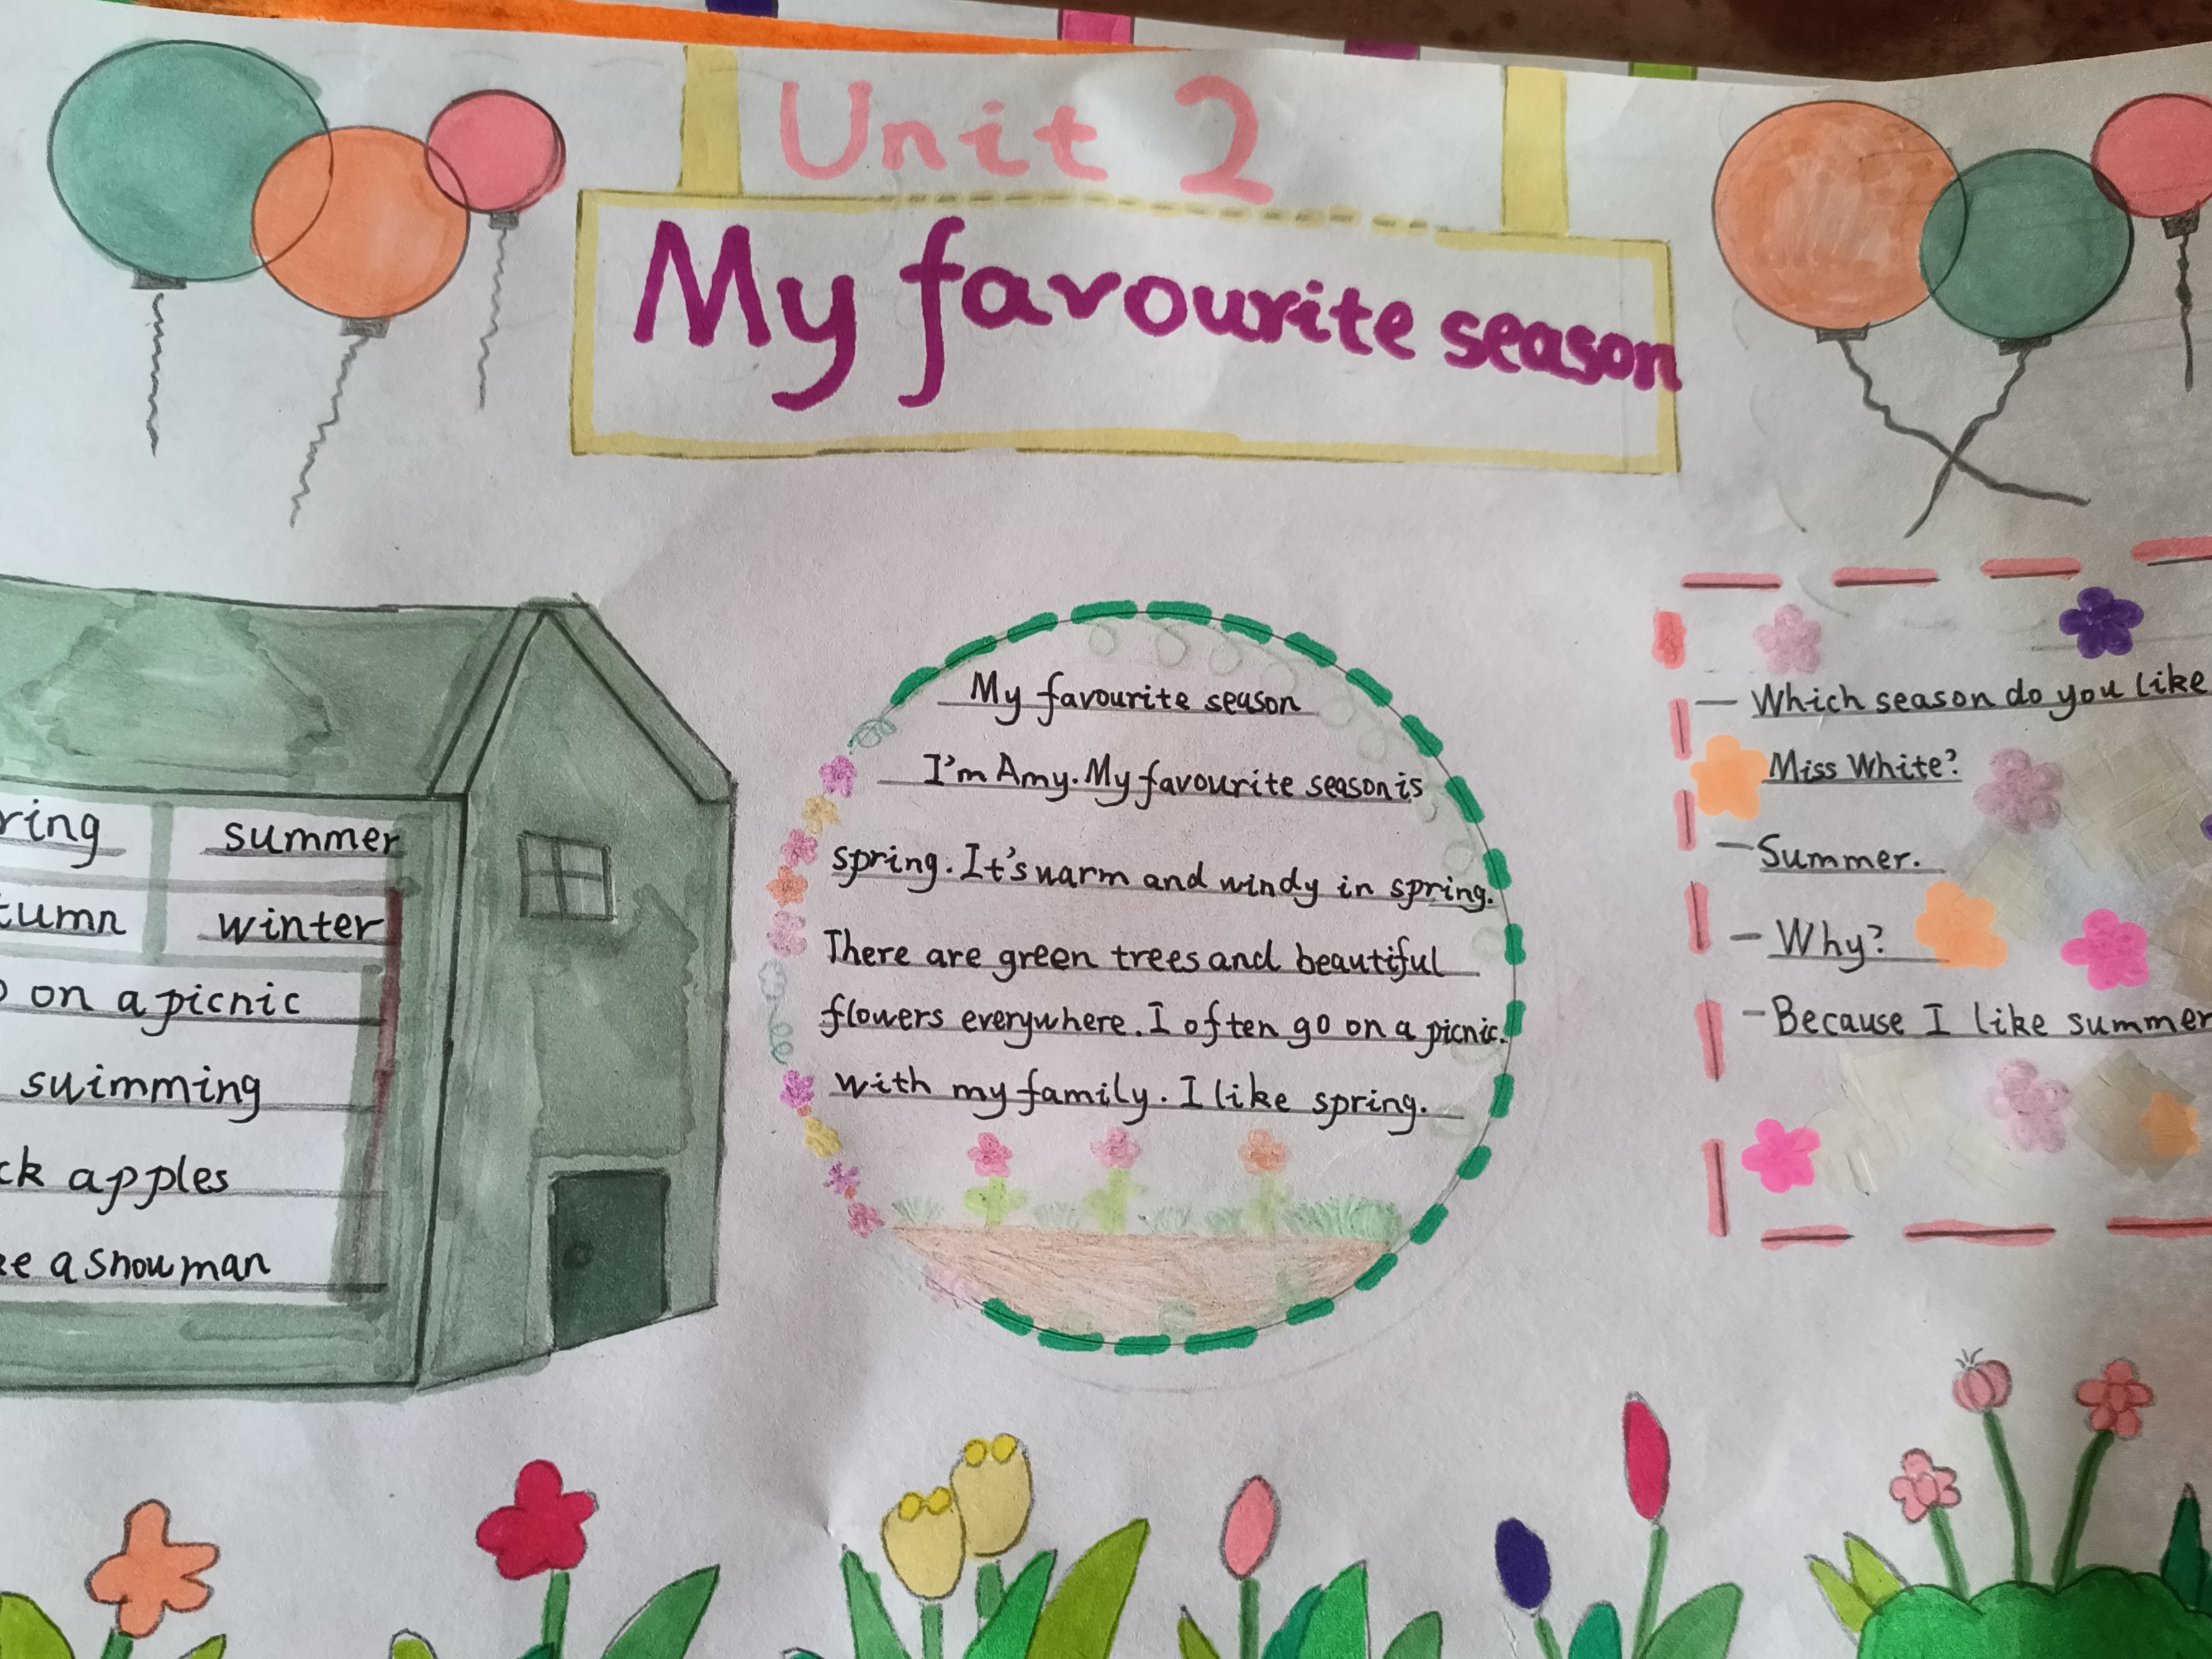 Unit 2
My favourite season
ring summer
tumn winter
on a picnic
suimming
ck apples
ke a snowman
My favourite season
I'm Amy. My favourite season is
spring. It's warm and windy in spring.
There are green trees and beautiful
flowers everywhere. I often go on a picnic.
with my family. I like spring.
— Which season do you like
Miss White?
— Summer.
— Why?
— Because I like summer